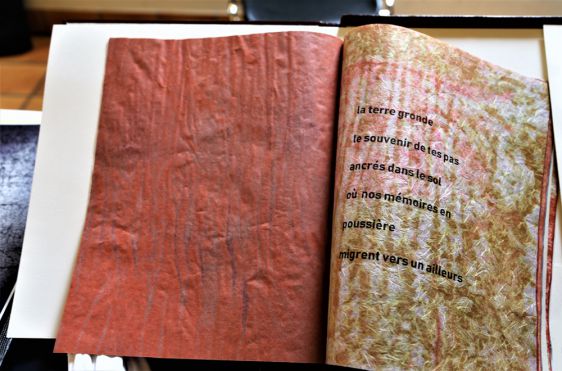 la terre gronde
le souvenir de tes pas
ancrés dans le sol
où nos mémoires en
poussière
migrent vers un ailleurs